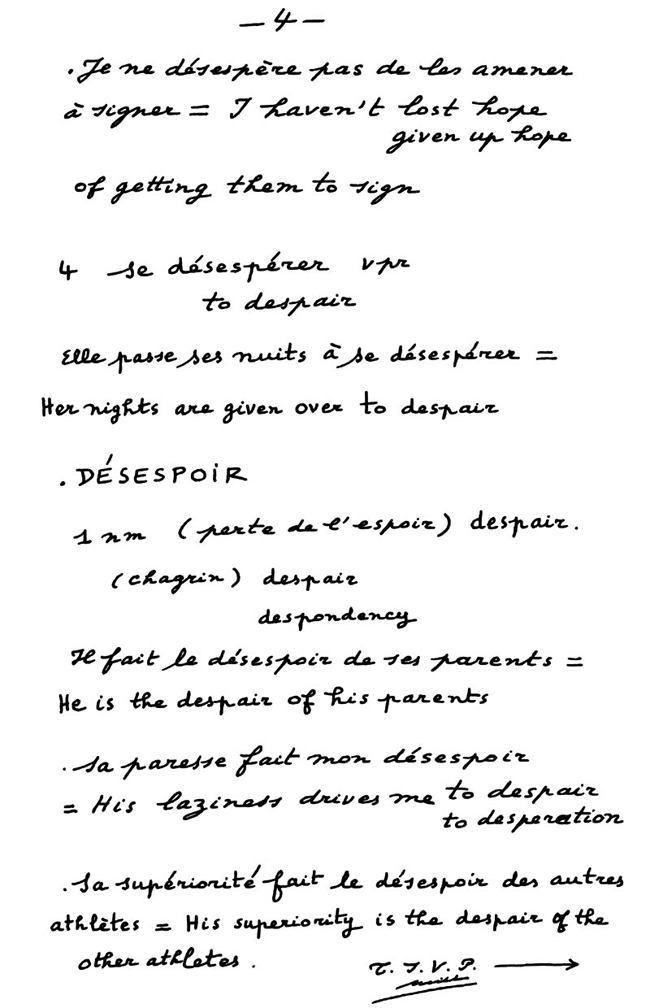 — 4 —
. Je ne désespère pas de les amener
à signer = I haven't lost hope
given up hope
of getting them to sign
4 se désespérer vpr
to despair
Elle passe ses nuits à se désespérer =
Her nights are given over to despair
. DÉSESPOIR
1 nm (perte de l'espoir) despair.
(chagrin) despair
despondency
Il fait le désespoir de ses parents =
He is the despair of his parents
. Sa paresse fait mon désespoir
= His laziness drives me to despair
to desperation
. Sa supériorité fait le désespoir des autres
athlètes = His superiority is the despair of the
other athletes.
T. S. V. P. →